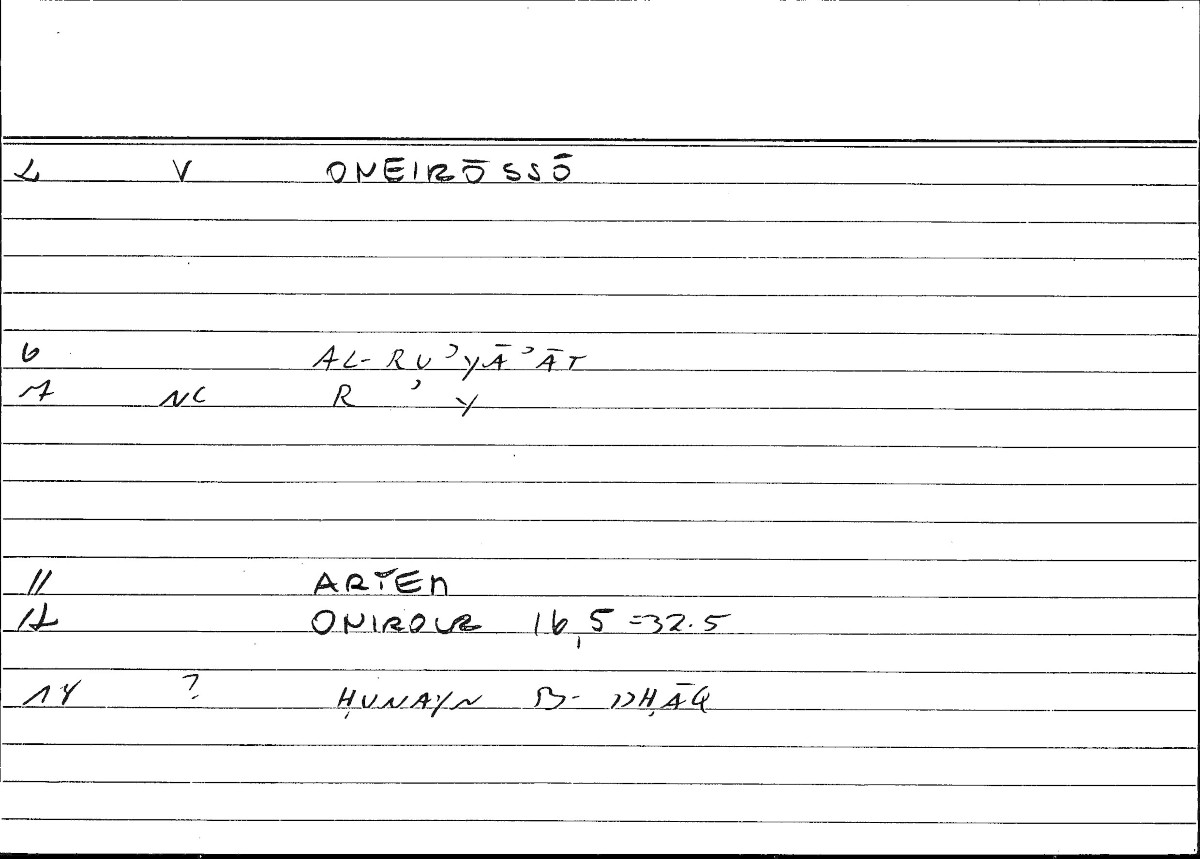 2 V ONEIRŌSSŌ
6 AL-RU’YĀ’ĀT
7 NC R ’ Y
11 ARTEM
12 ONIROCR 16,5=32.5
14 ? ḤUNAYN B-